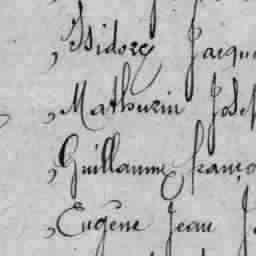 , Isidore Jacqu
, Mathurin Josep
, Guillaume franço
, Eugène Jean J